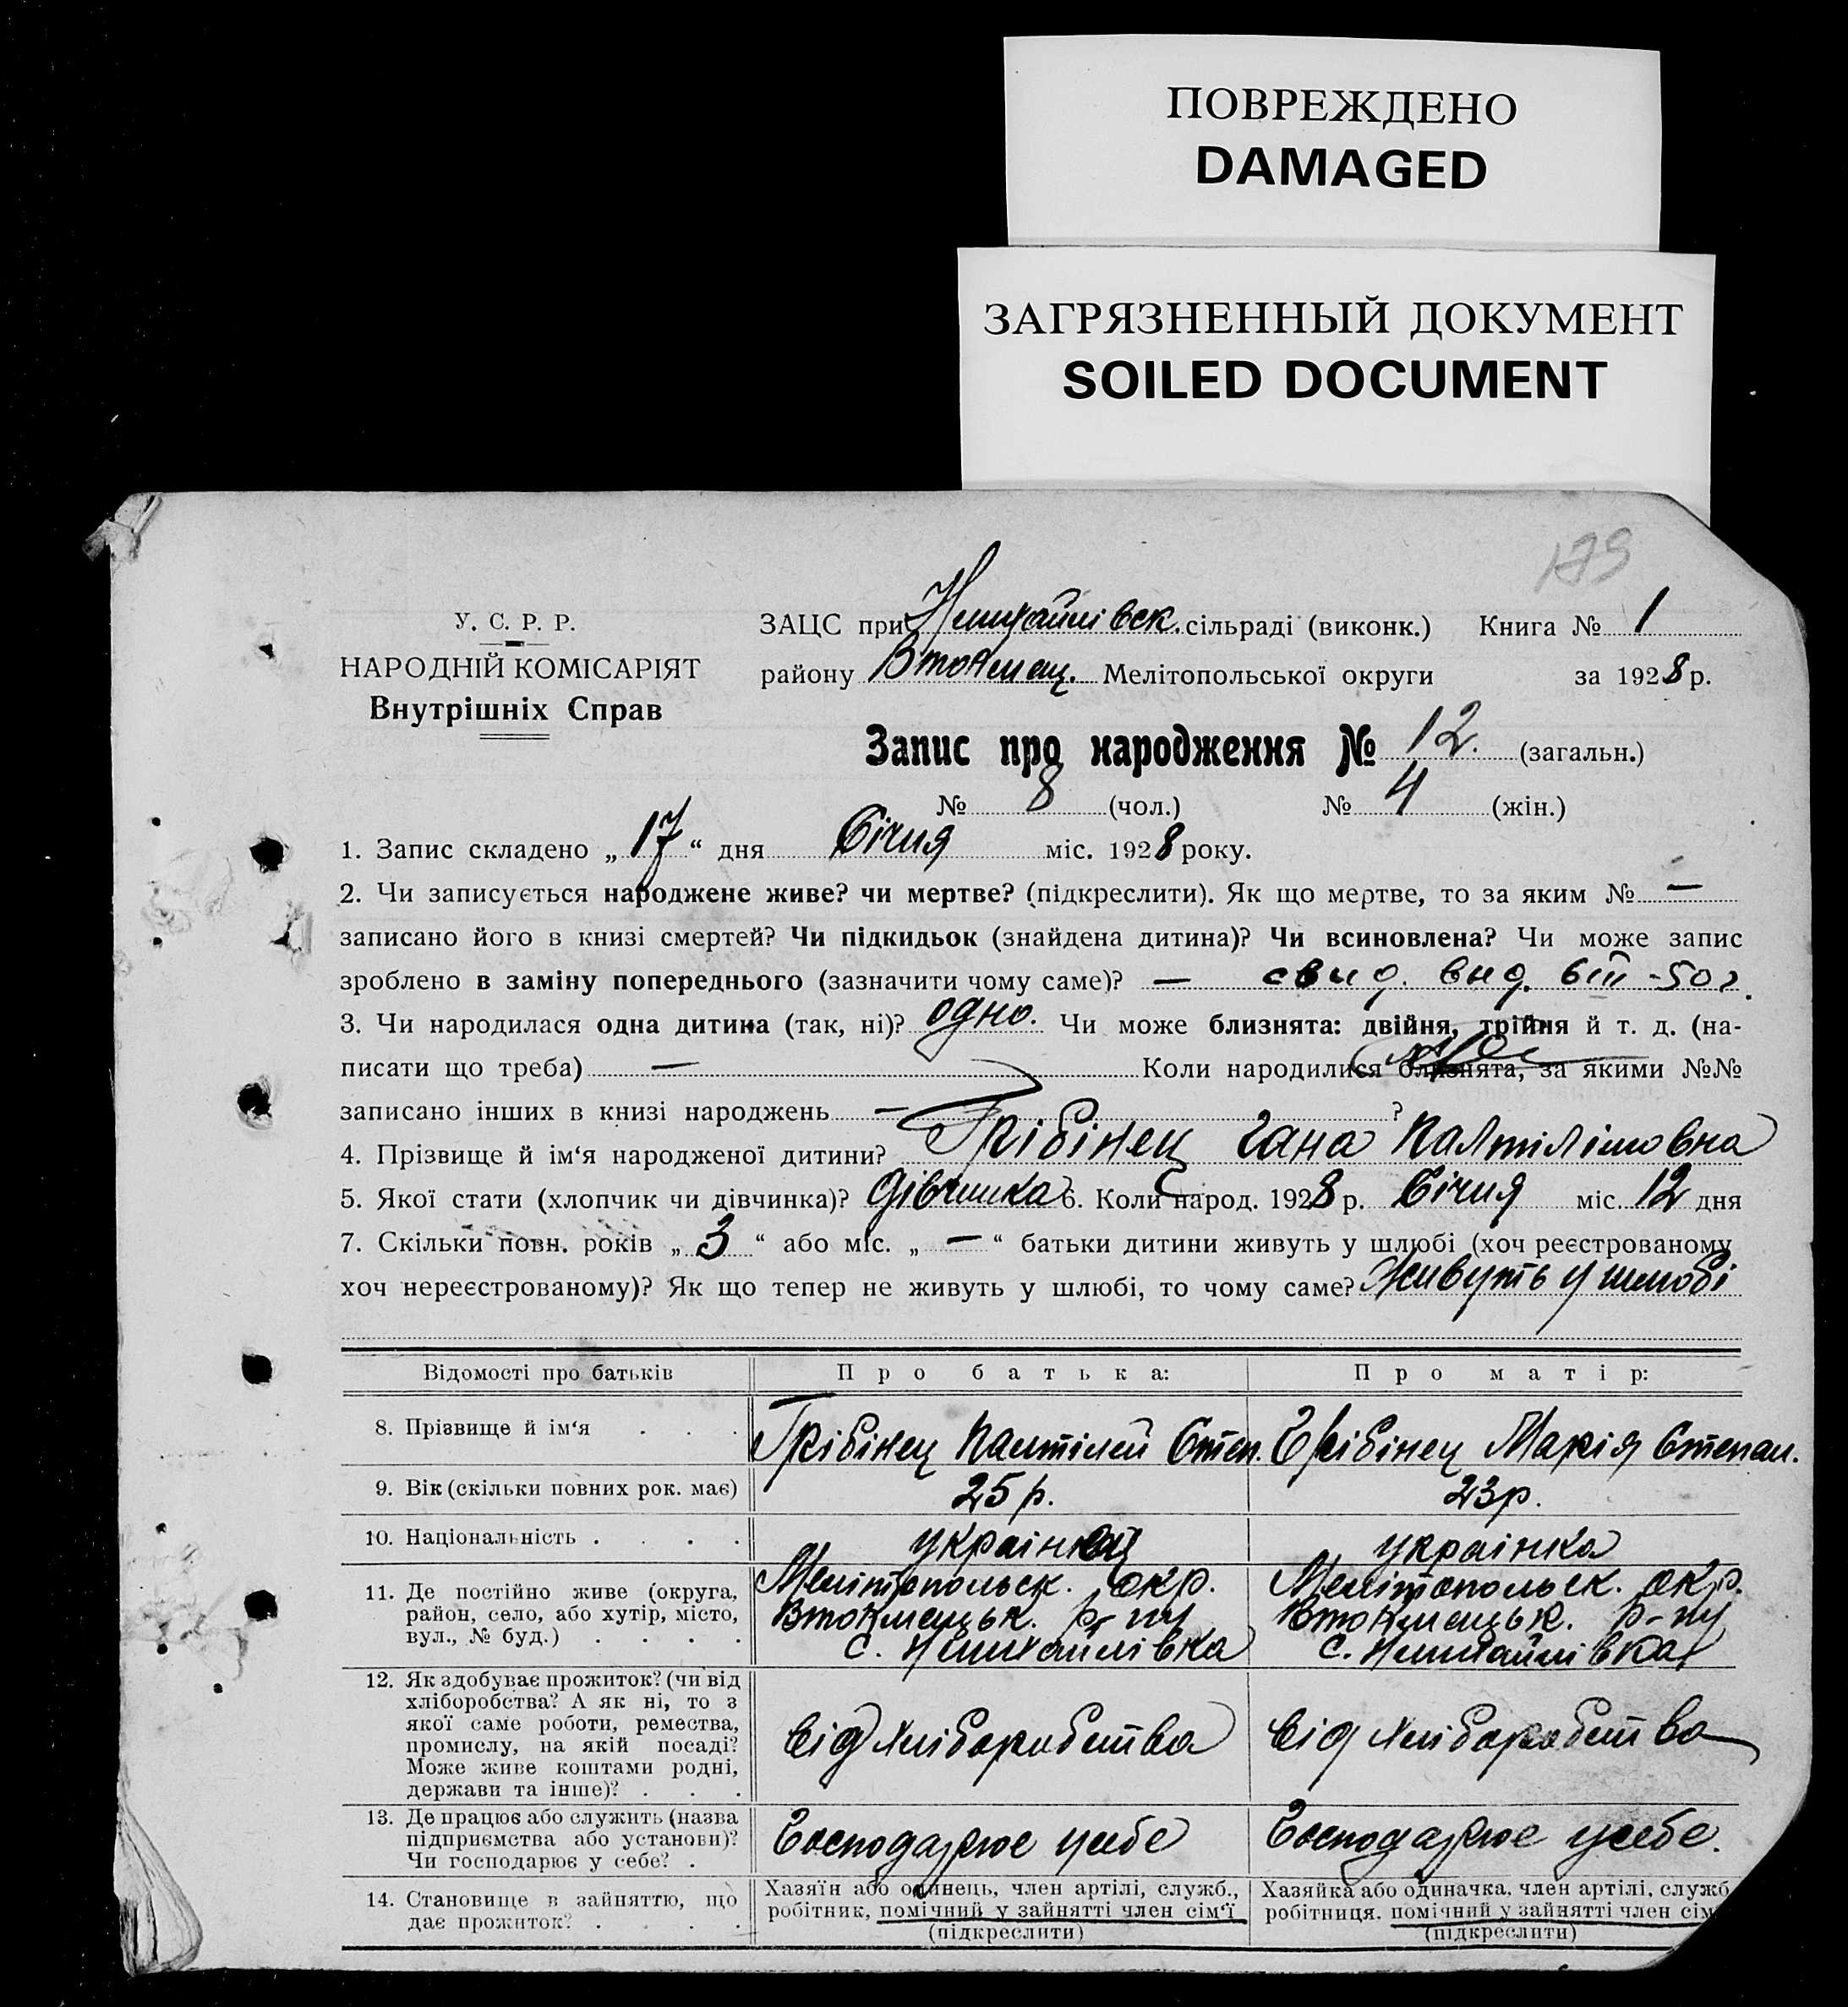 ПОВРЕЖДЕНО
DAMAGED
ЗАГРЯЗНЕННЫЙ ДОКУМЕНТ
SOILED DOCUMENT
У. С. Р. Р.
НАРОДНІЙ КОМІСАРІЯТ
Внутрішніх Справ
ЗАЦС при сільраді (виконк.) Книга № 1
району Втокмац. Мелітопольської округи за 1928 р.
Запис про народження № 12. (загальн.)
№ 8 (чол.) № 4 (жін.)
1. Запис складено „ 17 “ дня Січня міс. 1928 року.
2. Чи записується народжене живе? чи мертве? (підкреслити). Як що мертве, то за яким № —
записано його в книзі смертей? Чи підкидьок (знайдена дитина)? Чи всиновлена? Чи може запис
зроблено в заміну попереднього (зазначити чому саме)? — свид. выд. 6 III - 50 г.
3. Чи народилася одна дитина (так, ні)? одно. Чи може близнята: двійня, трійня й т. д. (на-
писати що треба) — Коли народилися близнята, за якими №№
записано інших в книзі народжень — ?
4. Прізвище й ім‘я народженої дитини? Грібінец Гана
5. Якої стати (хлопчик чи дівчинка)? дівчинка 6. Коли народ. 1928 р. Січня міс. 12 дня
7. Скільки повн. років „ 3 “ або міс. „ — “ батьки дитини живуть у шлюбі (хоч реєстрованому
хоч нереєстрованому)? Як що тепер не живуть у шлюбі, то чому саме? Живуть у шлюбі
Відомості про батьків Про батька: Про матір:
8. Прізвище й ім‘я . . . Грібінец Пантілей Степ. Грібінец Марія Степан.
9. Вік (скільки повних рок. має) 25 р. 23 р.
10. Національність . . . . українец українка
11. Де постійно живе (округа, Мелітопольск. окр. Мелітопольск. окр.
район, село, або хутір, місто, Втокмацьк. р-ну Втокмацьк. р-ну
вул., № буд.) . . . . с. с.
12. Як здобуває прожиток? (чи від
хліборобства? А як ні, то з
якої саме роботи, ремества,
промислу, на якій посаді? від хліборобства від хліборобства
Може живе коштами родні,
держави та інше)? . . .
13. Де працює або служить (назва
підприємства або установи)? Господарює усебе Господарює усебе.
Чи господарює у себе? .
14. Становище в зайняттю, що Хазяїн або одинець, член артілі, служб., Хазяйка або одиначка, член артілі, служб
дає прожиток? . . . . робітник, помічний у зайнятті член сім‘ї робітниця, помічний у зайнятті член сім
(підкреслити) (підкреслити)